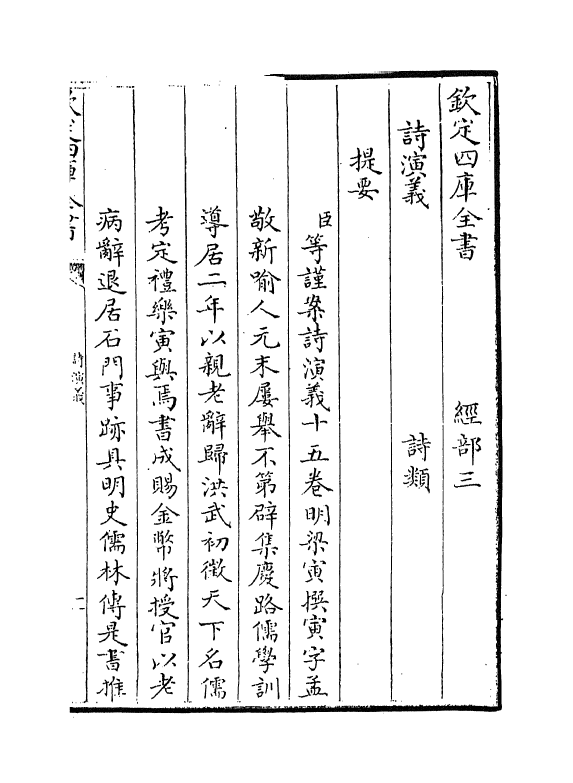 欽定四庫全書　經部三
詩演義　詩類
提要
臣等謹案詩演義十五卷明梁寅撰寅字孟
敬新喻人元末屢舉不第辟集慶路儒學訓
導居二年以親老辭歸洪武初徵天下名儒
考定禮樂寅與焉書成賜金幣將授官以老
病辭退居石門事跡具明史儒林傳是書推
欽定四庫全書
詩演義